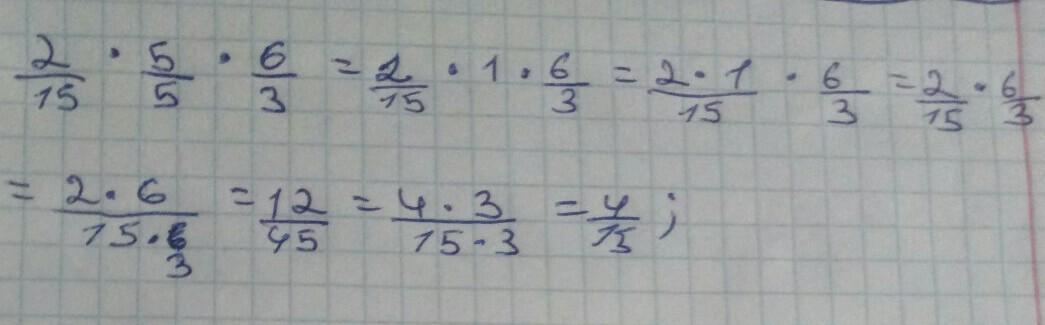 2/15 · 5/5 · 6/3 = 2/15 · 1 · 6/3 = 2·1/15 · 6/3 = 2/15 · 6/3
= 2·6/15·3 = 12/45 = 4·3/15·3 = 4/15 ;